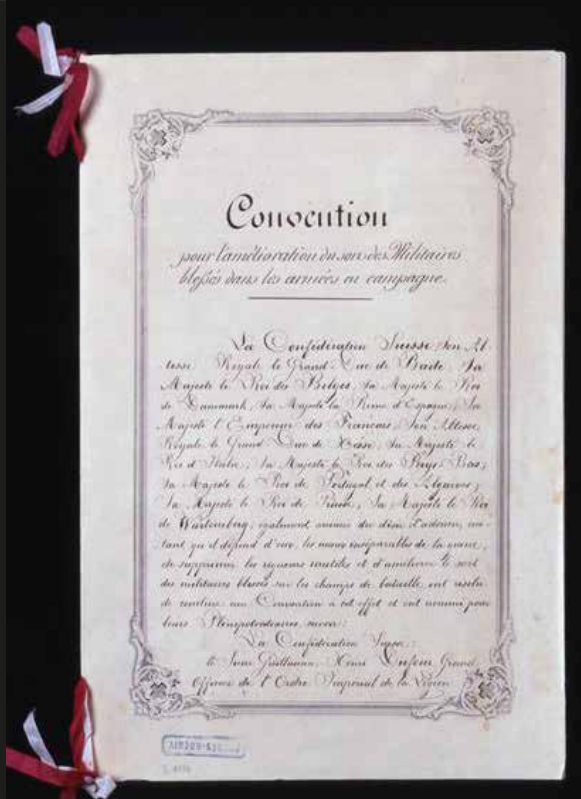 Convention
pour l'amélioration du sort des Militaires
blessés dans les armées en campagne.
La Confédération Suisse, Son Al-
tesse Royale le Grand-Duc de Bade, Sa
Majesté le Roi des Belges, Sa Majesté le Roi
de Danemark, Sa Majesté la Reine d'Espagne, Sa
Majesté l'Empereur des Français, Son Altesse
Royale le Grand-Duc de Hesse, Sa Majesté le
Roi d'Italie, Sa Majesté le Roi des Pays-Bas,
Sa Majesté le Roi de Portugal et des Algarves,
Sa Majesté le Roi de Prusse, Sa Majesté le Roi
de Wurtemberg, également animés du désir d'adoucir, au-
tant qu'il dépend d'eux, les maux inséparables de la guerre,
de supprimer les rigueurs inutiles et d'améliorer le sort
des militaires blessés sur les champs de bataille, ont résolu
de conclure une Convention à cet effet et ont nommé pour
leurs Plénipotentiaires, savoir:
La Confédération Suisse:
le Sieur Guillaume-Henri Dufour, Grand
Officier de l'Ordre Impérial de la Légion